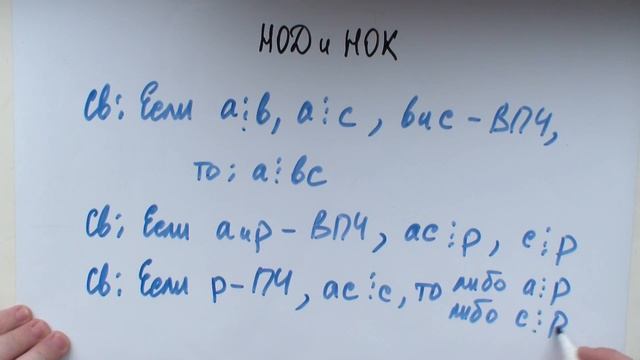 НОД и НОК
Св: Если a⋮b, a⋮c, b и c – ВПЧ,
то: a⋮bc
Св: Если a и p – ВПЧ, ac⋮p, c⋮p
Св: Если p – ПЧ, ac⋮c, то либо a⋮p
либо c⋮p